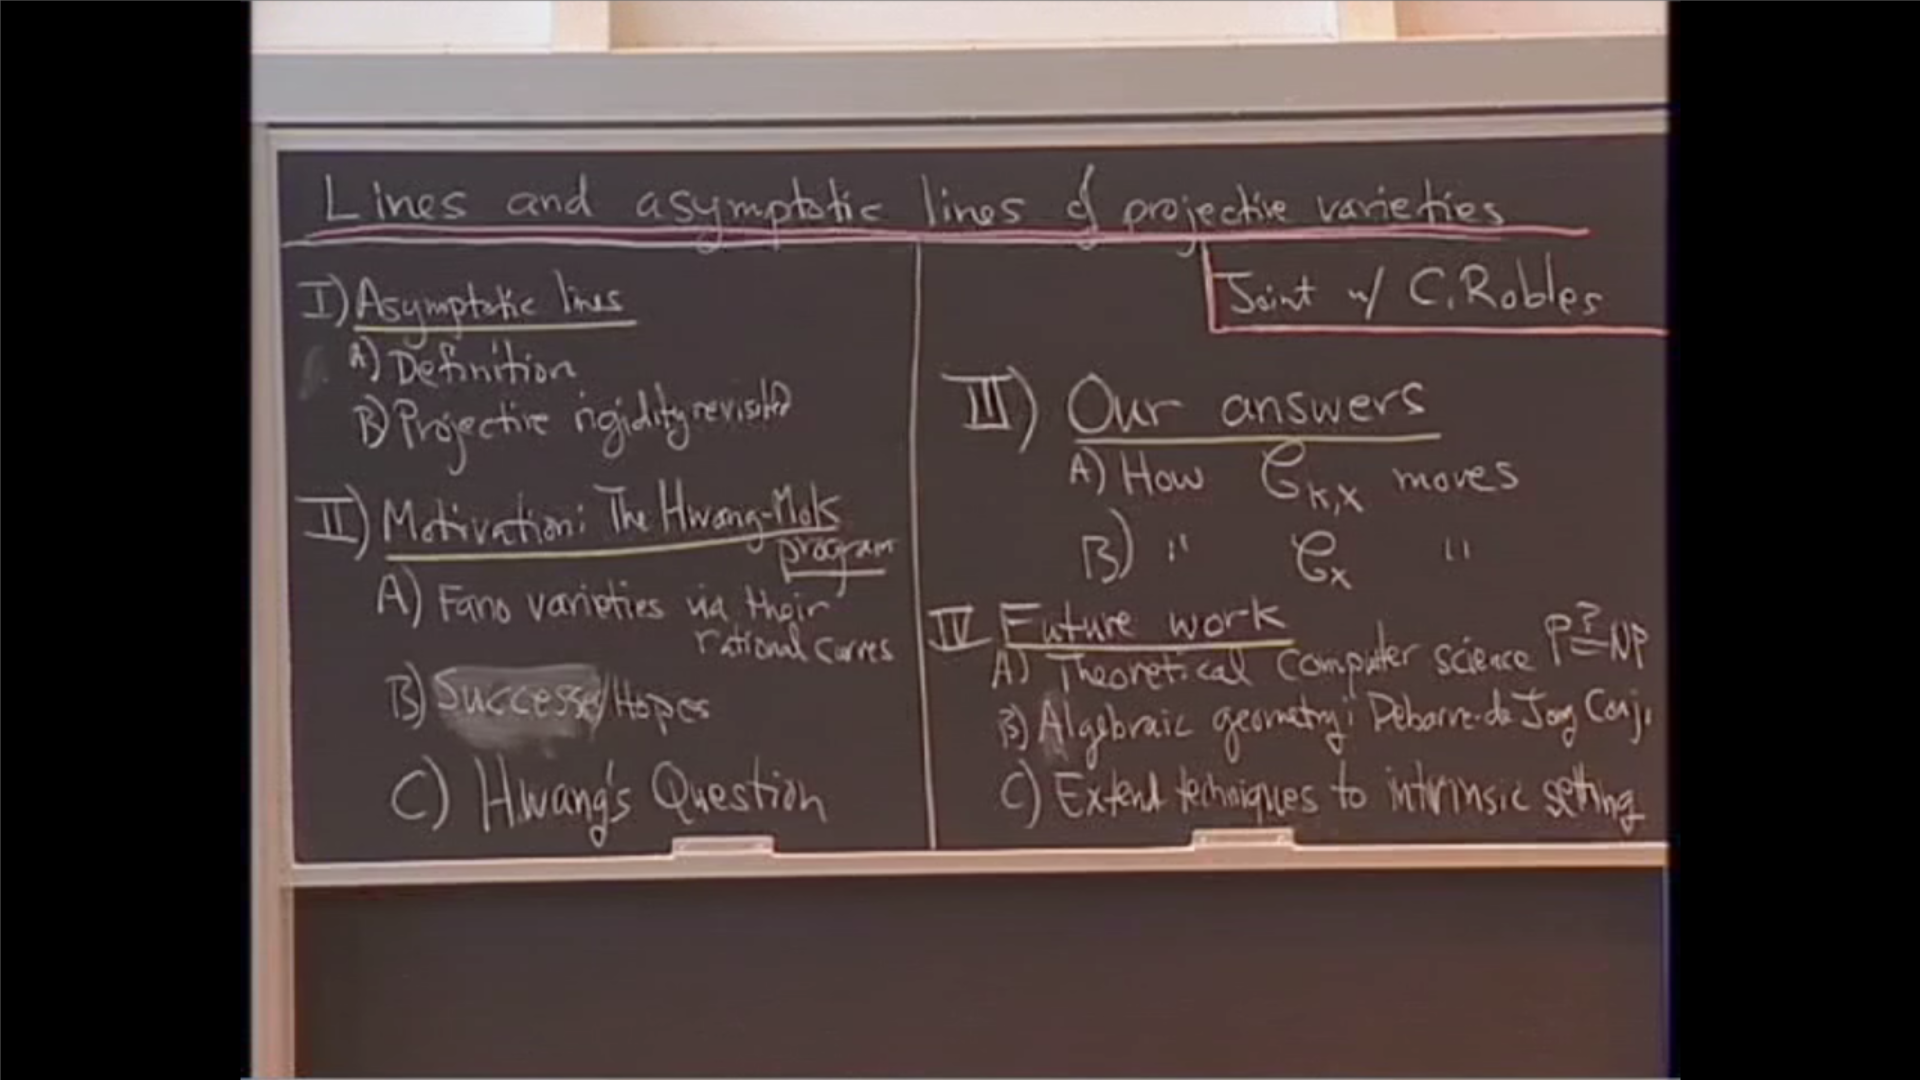 Lines and asymptotic lines of projective varieties
I) Asymptotic lines
A) Definition
B) Projective rigidity revisited
II) Motivation: The Hwang-Mok
program
A) Fano varieties via their
rational curves
B) Successes/Hopes
C) Hwang's Question
Joint w/ C. Robles
III) Our answers
A) How 𝒞k,x moves
B) " 𝒞x "
IV Future work
A) Theoretical Computer science P ≟ NP
B) Algebraic geometry: Debarre-de Jong Conj.
C) Extend techniques to intrinsic setting